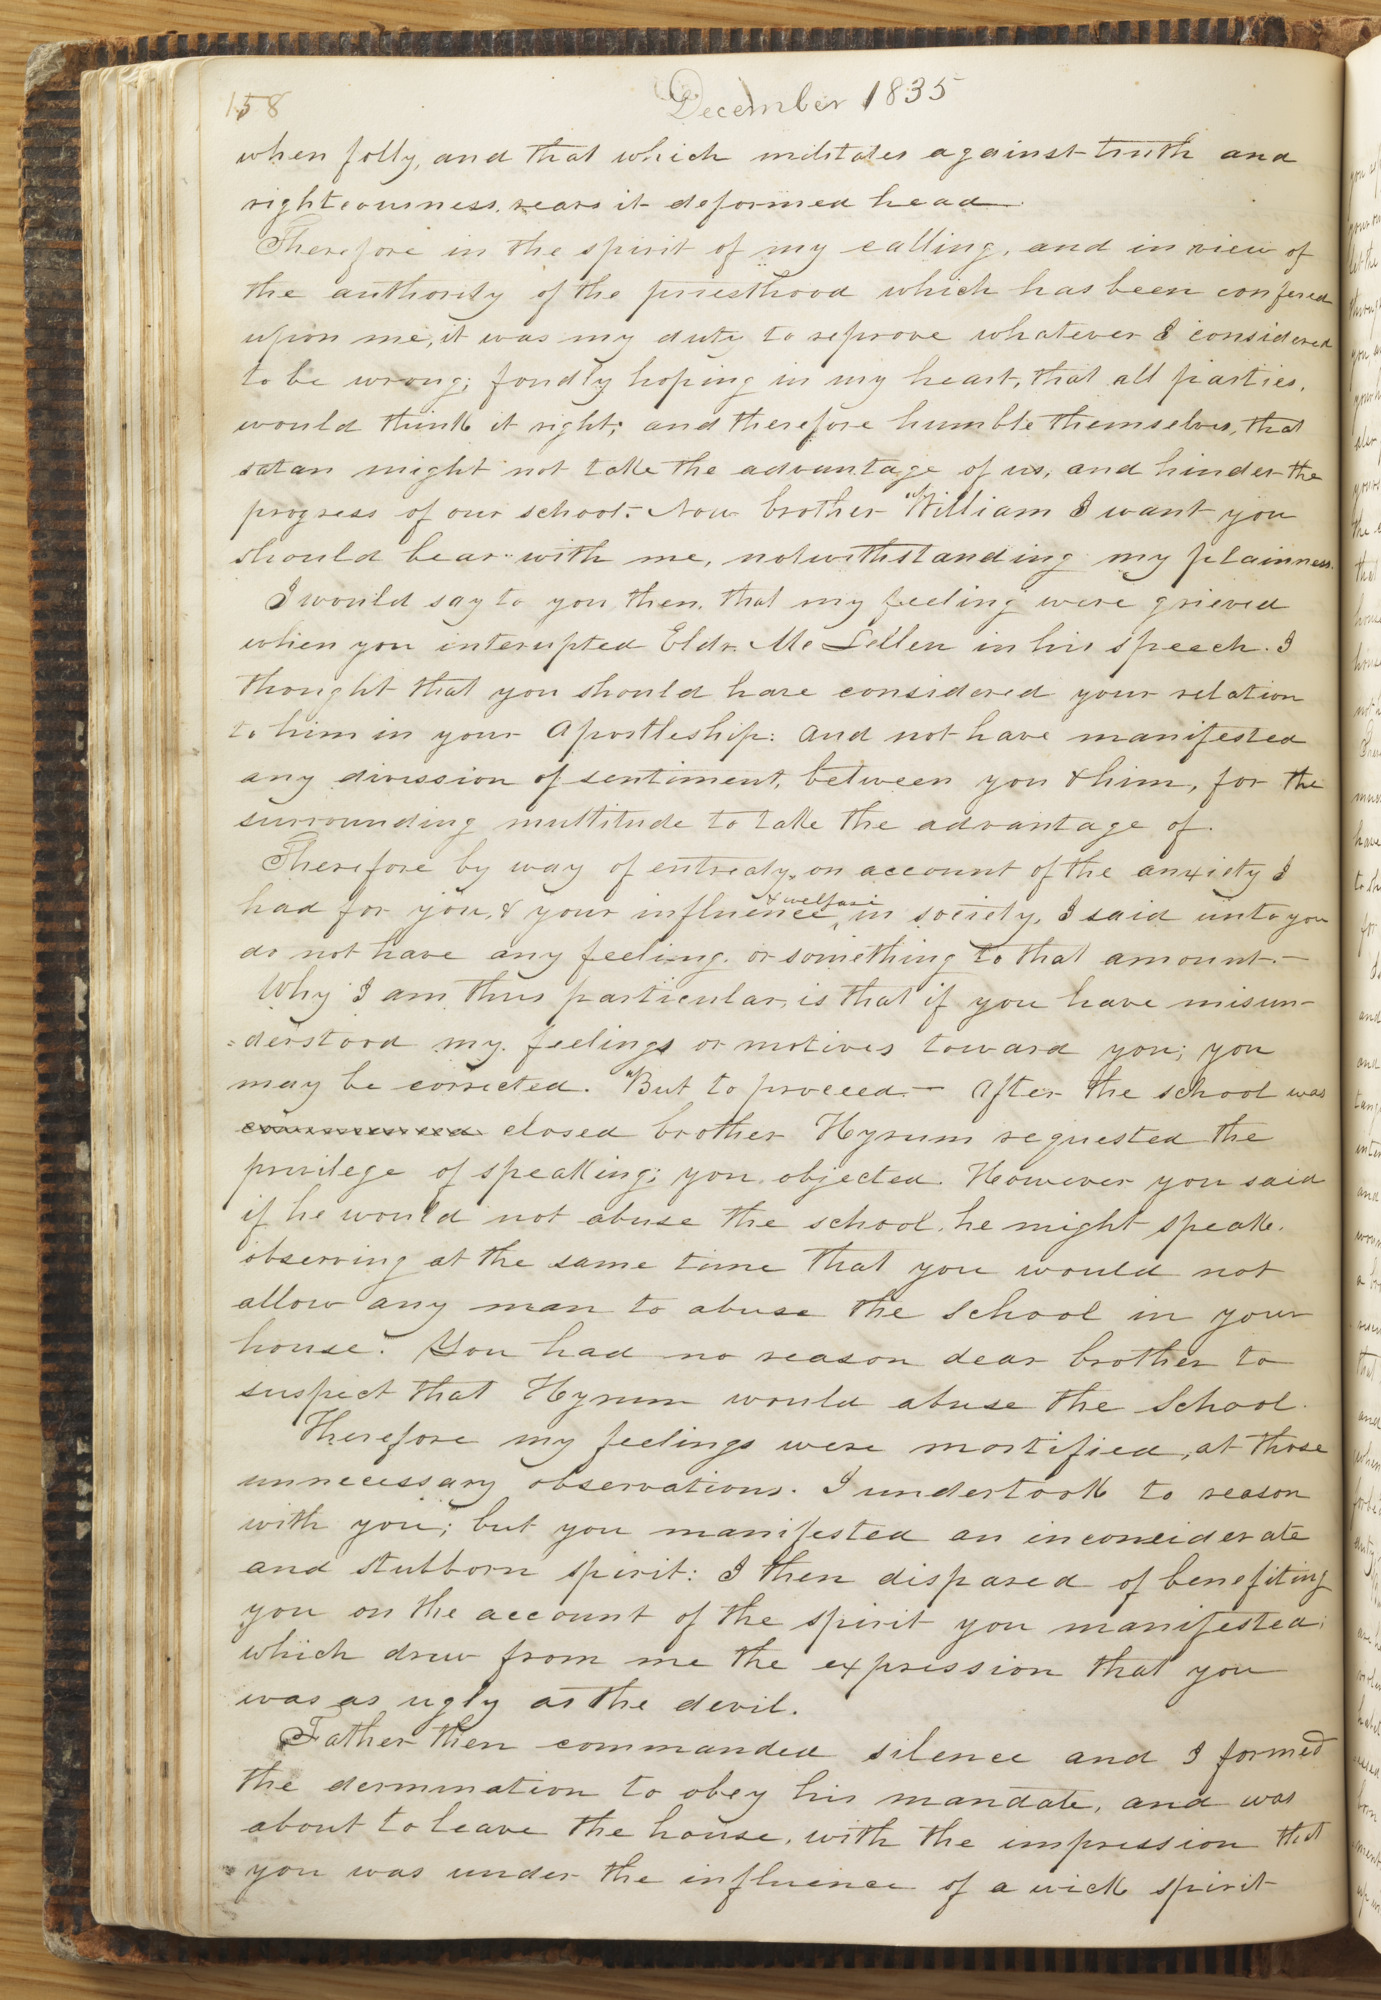 158
December 1835
when folly, and that which militates against truth and
righteousness, rears it deformed head.
Therefore in the spirit of my calling, and in view of
the authority of the priesthood which has been confered
upon me, it was my duty to reprove whatever I considered
to be wrong; fondly hoping in my heart, that all parties,
would think it right; and therefore humble themselves, that
satan might not take the advantage of us, and hinder the
progress of our school. Now brother William I want you
should bear with me, notwithstanding my plainness.
I would say to you then, that my feeling were grieved
when you interupted Eldr. Mc Lellen in his speech. I
thought that you should have considered your relation
to him in your Apostleship: and not have manifested
any divission of sentiment, between you & him, for the
surrounding multitude to take the advantage of.
Therefore by way of entreaty, on account of the anxiety I
had for you, & your influence & welfare in society, I said unto you
do not have any feeling, or something to that amount.—
Why I am thus particular, is that if you have misun-
=derstood my feelings or motives toward you; you
may be corrected. "But to proceed.— After the school was
commenced closed brother Hyrum requested the
privilege of speaking; you objected. However you said
if he would not abuse the school, he might speak.
observing at the same time that you would not
allow any man to abuse the school in your
house. You had no reason dear brother to
suspect that Hyrum would abuse the School.
Therefore my feelings were mortified, at those
unnecessary observations. I undertook to reason
with you; but you manifested an inconsiderate
and stubborn spirit: I then dispared of benefiting
you on the account of the spirit you manifested;
which drew from me the expression that you
was as ugly as the devil.
Father then commanded silence and I formed
the dermination to obey his mandate, and was
about to leave the house, with the impression that
you was under the influence of a wick spirit